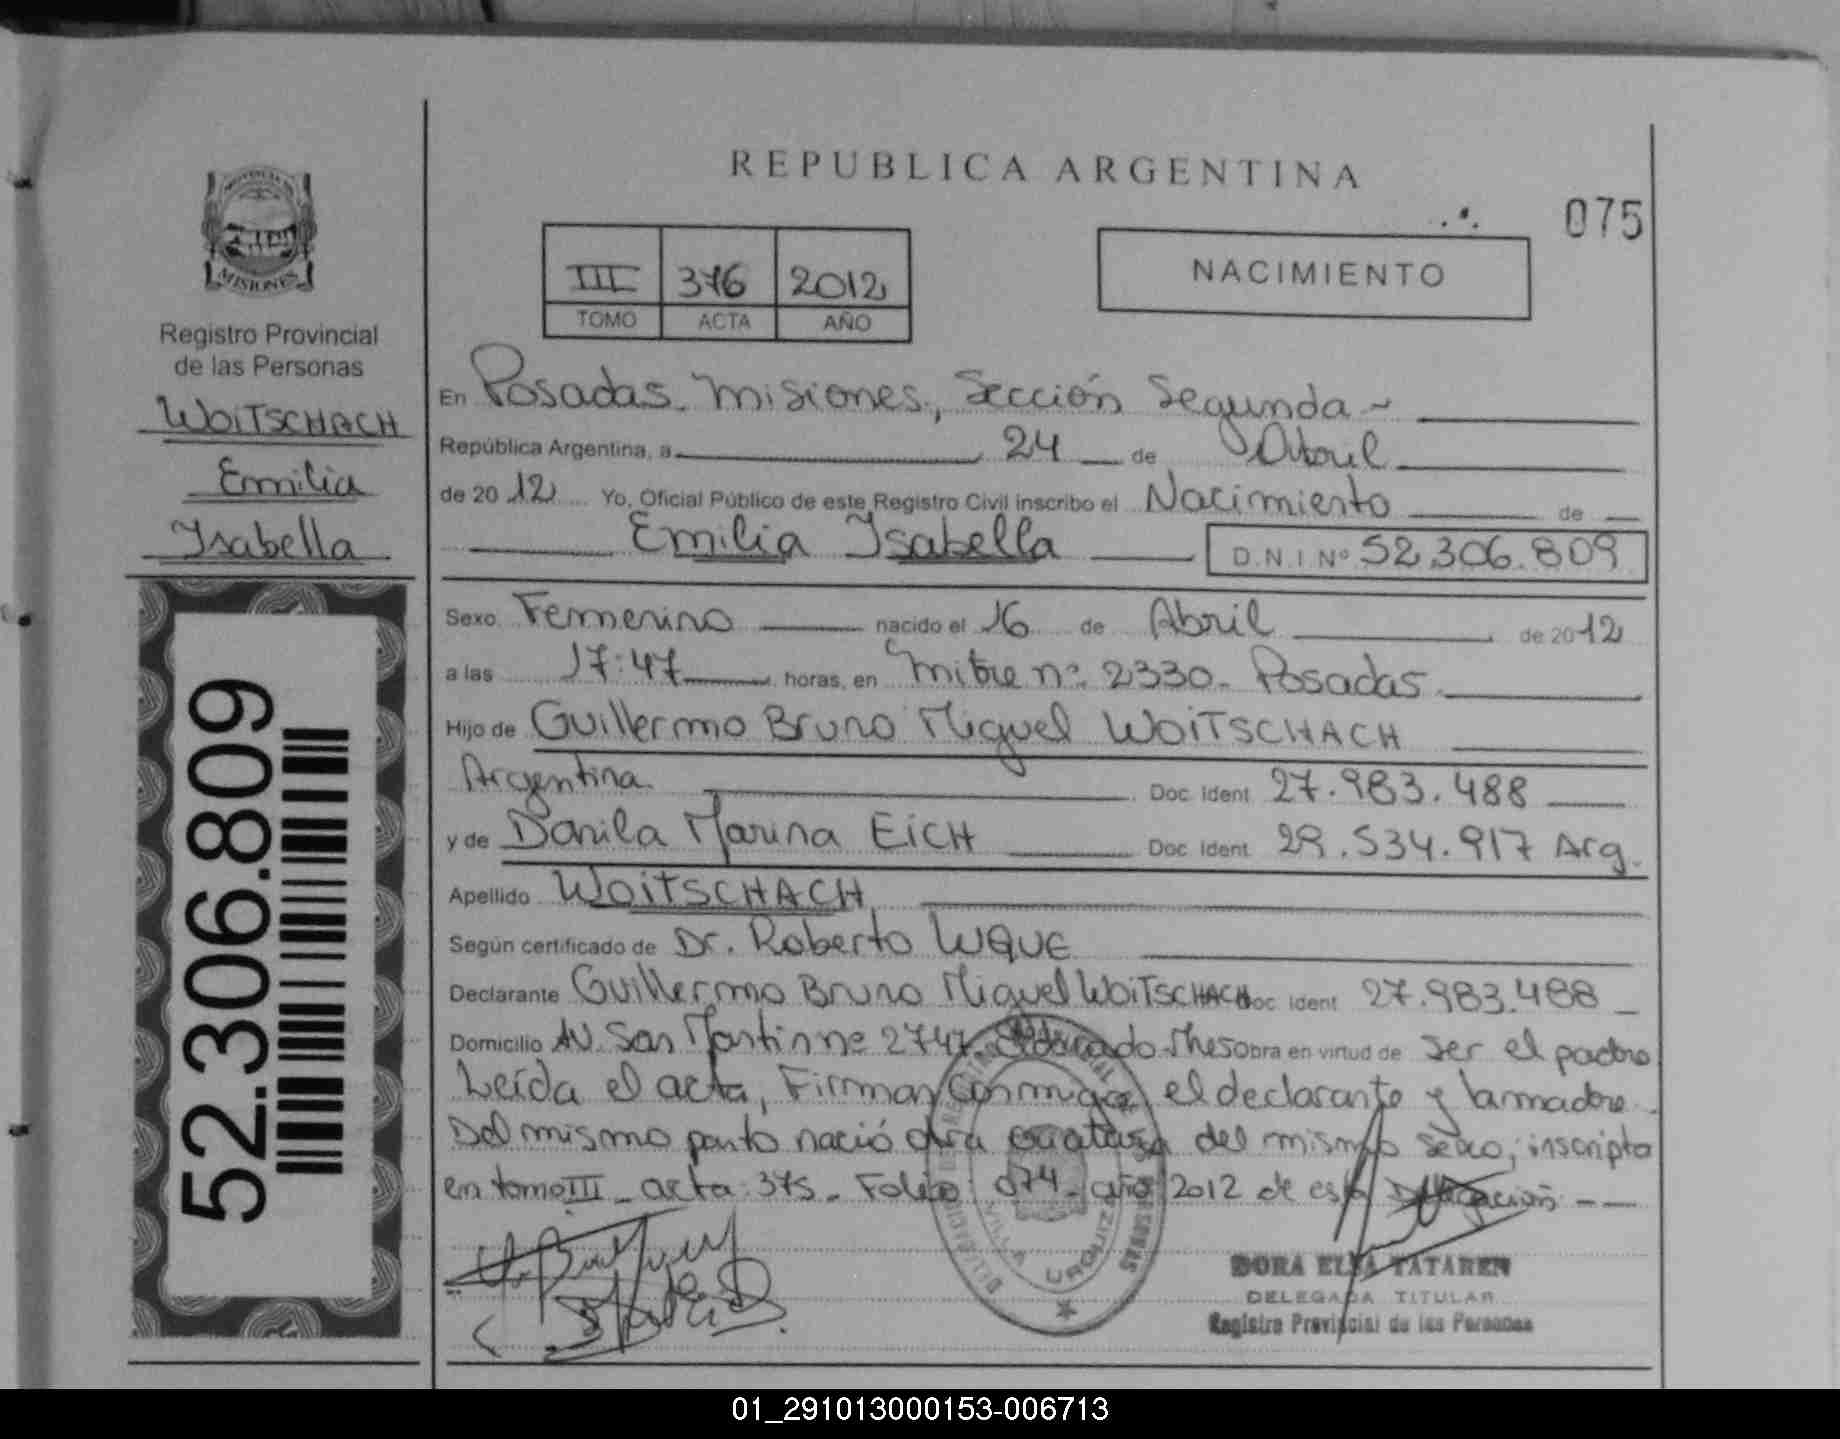 REPUBLICA ARGENTINA
075
PROVINCIA DE
MISIONES
Registro Provincial
de las Personas
WOITSCHACH
Emilia
Isabella
52.306.809
III 376 2012
TOMO ACTA AÑO
NACIMIENTO
En Posadas. Misiones, Sección Segunda
República Argentina, a 24 de Abril
de 2012 Yo, Oficial Público de este Registro Civil inscribo el Nacimiento de
Emilia Isabella D.N.I Nº 52.306.809
Sexo Femenino nacido el 16 de Abril de 2012
a las 17:47 horas, en Mitre nº 2330. Posadas.
Hijo de Guillermo Bruno Miguel WOITSCHACH
Argentina. Doc. Ident 27.983.488
y de Danila Marina EICH Doc. Ident 29.534.917 Arg.
Apellido WOITSCHACH
Según certificado de Dr. Roberto LUQUE
Declarante Guillermo Bruno Miguel WOITSCHACH Doc. Ident 27.983.488
Domicilio AV. San Martin nº 2747. Eldorado Mnes Obra en virtud de ser el padre
Leída el acta, Firman conmigo el declarante y la madre.
Del mismo parto nació otra criatura del mismo sexo, inscripta
en tomo III - acta: 375 - Folio: 074 - año 2012 de esta Delegación
VILLA URQUIZA
DORA ELSA TATAREN
DELEGADA TITULAR
Registro Provincial de las Personas
01_291013000153-006713